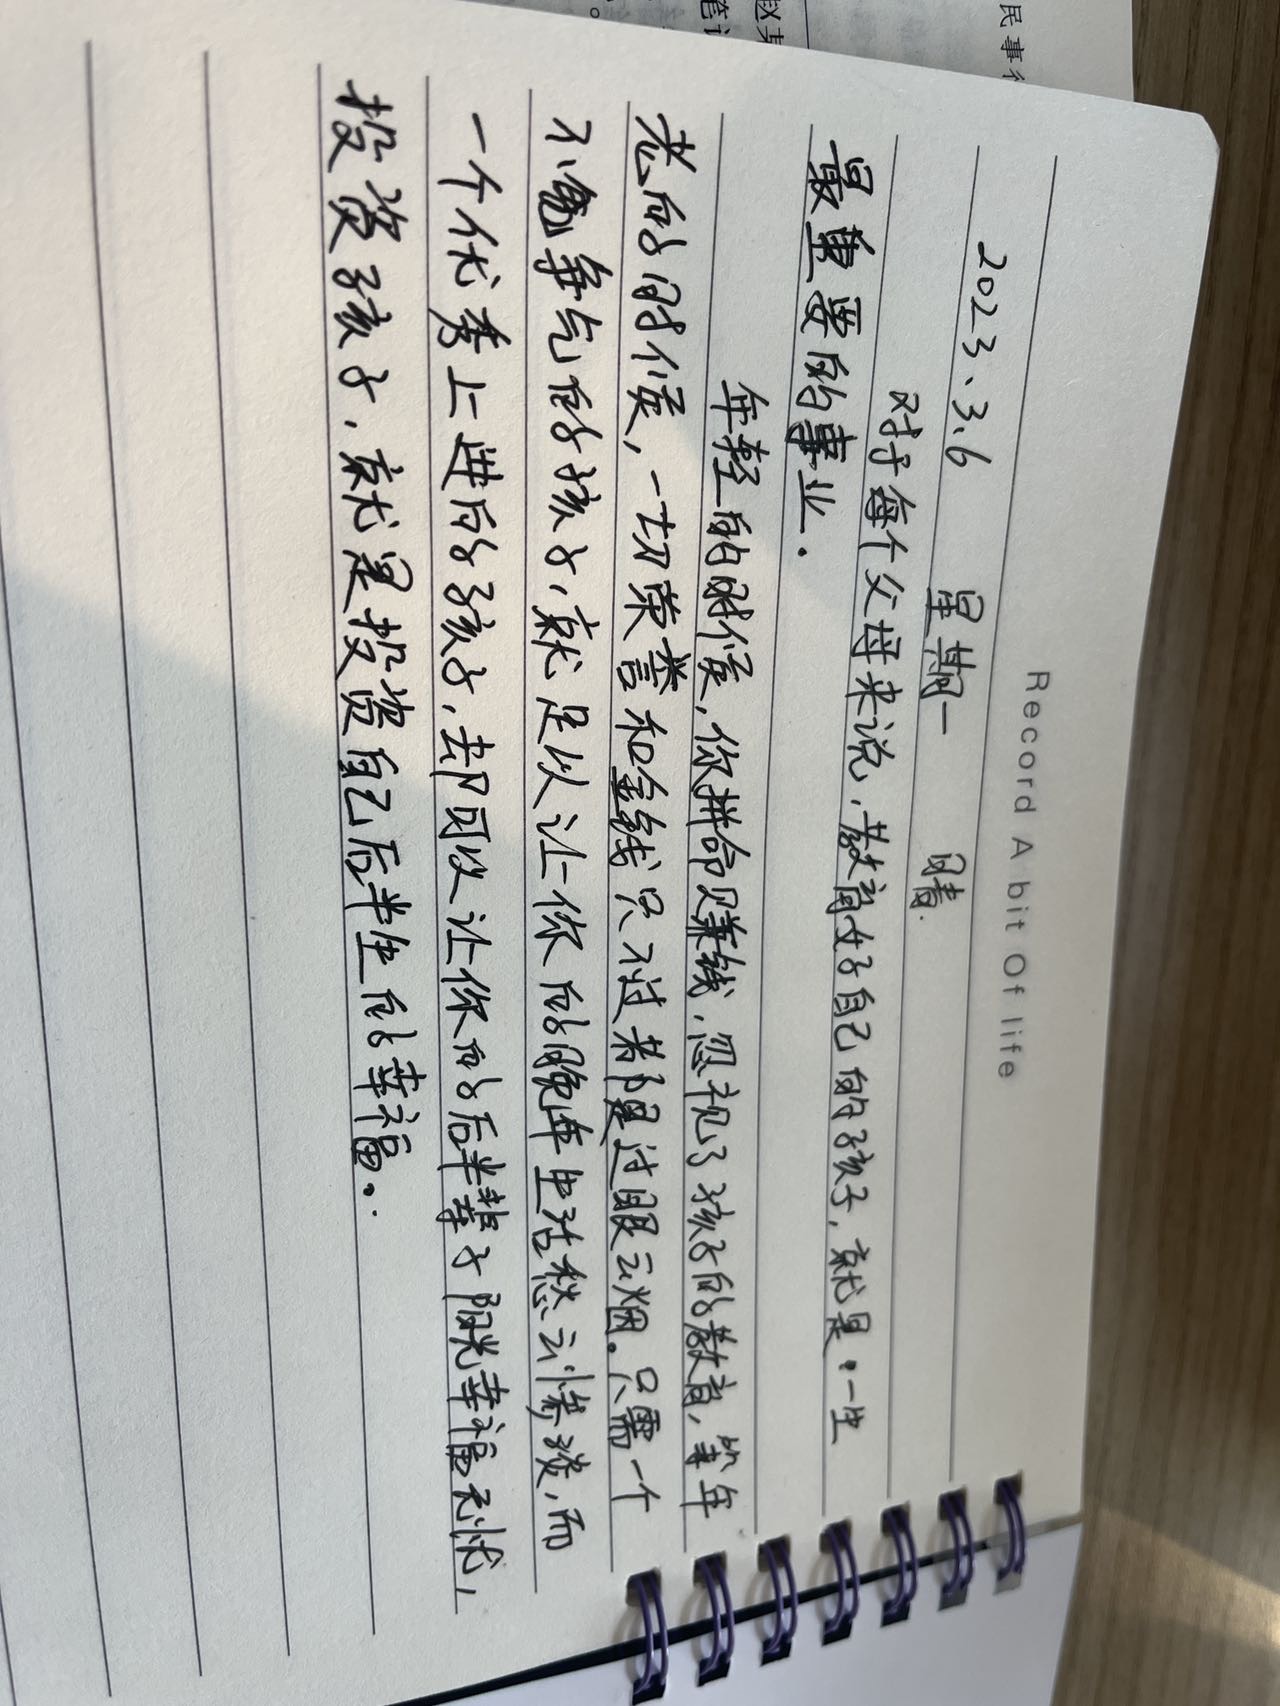 民事行
赵某
笔记
Record A bit Of life
2023、3、6 星期一 晴.
对于每个父母来说,教育好自己的孩子,就是·一生
最重要的事业.
年轻的时候,你拼命赚钱,忽视了孩子的教育,等年
老的时候,一切荣誉和金钱只不过都是过眼云烟。只需一个
不争气的孩子,就足以让你的晚年生活愁云惨淡,而
一个优秀上进的孩子,却可以让你的后半辈子阳光幸福无忧,
投资孩子,就是投资自己后半生的幸福..